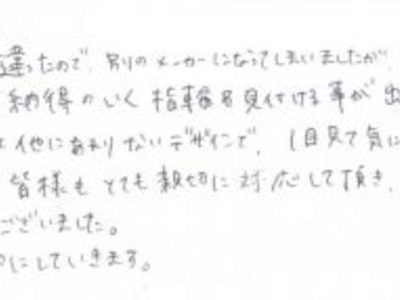 違ったので、別のメーカーになってしまいましたが
納得のいく指輪を見付ける事が出
他にあまりないデザインで、1目見て気に
皆様もとても親切に対応して頂き、
ございました。
にしていきます。